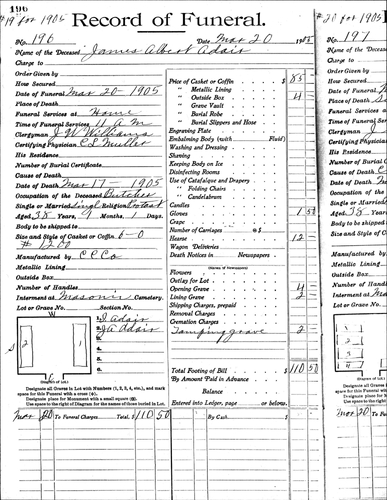 196
#19 for 1905
Record of Funeral.
No. 196 Date Mar 20 1905
Name of the Deceased James Albert Adair
Charge to
Order Given by
How Secured
Date of Funeral Mar 20 1905
Place of Death
Funeral Services at Home
Time of Funeral Services 11 A M
Clergyman J W Williams
Certifying Physician C L Muller
His Residence
Number of Burial Certificate
Cause of Death
Date of Death Mar 17 - 1905
Occupation of the Deceased Butcher
Single or Married Singl Religion Protest
Aged 38 Years, 9 Months, 1 Days
Body to be shipped to
Size and Style of Casket or Coffin 6-0
# 1200
Manufactured by C P Co
Metallic Lining
Outside Box
Number of Handles
Interment at Masonic Cemetery.
Lot or Grave No. Section No.
1 2
S
1. J. Adair
2. J A Adair
3.
4.
5.
6.
7.
8.
(Diagram of Lot.)
Designate all Graves in Lot with Numbers (1, 2, 3, 4, etc.), and mark
space for this Funeral with a cross (x).
Designate place for Monument with a small square (□).
Use space to the right of Diagram for the names of those buried in Lot.
Price of Casket or Coffin $ 85 -
" Metallic Lining
" Outside Box 4
" Grave Vault
" Burial Robe
" Burial Slippers and Hose
Engraving Plate
Embalming Body (with Fluid)
Washing and Dressing
Shaving
Keeping Body on Ice
Disinfecting Rooms
Use of Catafalque and Drapery
" Folding Chairs
" Candelabrum
Candles
Gloves 1 50
Crape
Number of Carriages @ $
Hearse 12
Wagon Deliveries
Death Notices in Newspapers
(Names of Newspapers)
Flowers
Outlay for Lot
Opening Grave 4
Lining Grave 2
Shipping Charges, prepaid
Removal Charges
Cremation Charges
Tamping grave 2
Total Footing of Bill $ 110 50
By Amount Paid in Advance
Balance
Entered into Ledger, page or below.
Mar 20 To Funeral Charges Total, $ 110 50 By Cash $
#20 for 1905
No. 197
Name of the Deceased
Charge to
Order Given by
How Secured
Date of Funeral
Place of Death
Funeral Services
Time of Funeral
Clergyman
Certifying Physician
His Residence
Number of Burial
Cause of Death
Date of Death
Occupation of the
Single or Married
Aged 38
Body to be shipped
Size and Style of
Manufactured by
Metallic Lining
Outside Box
Number of Handles
Interment at
Lot or Grave No.
1
2
3
4
(Diagram of
Designate all
space for this Fu
Designate place
Use space to the
Mar 20 To F